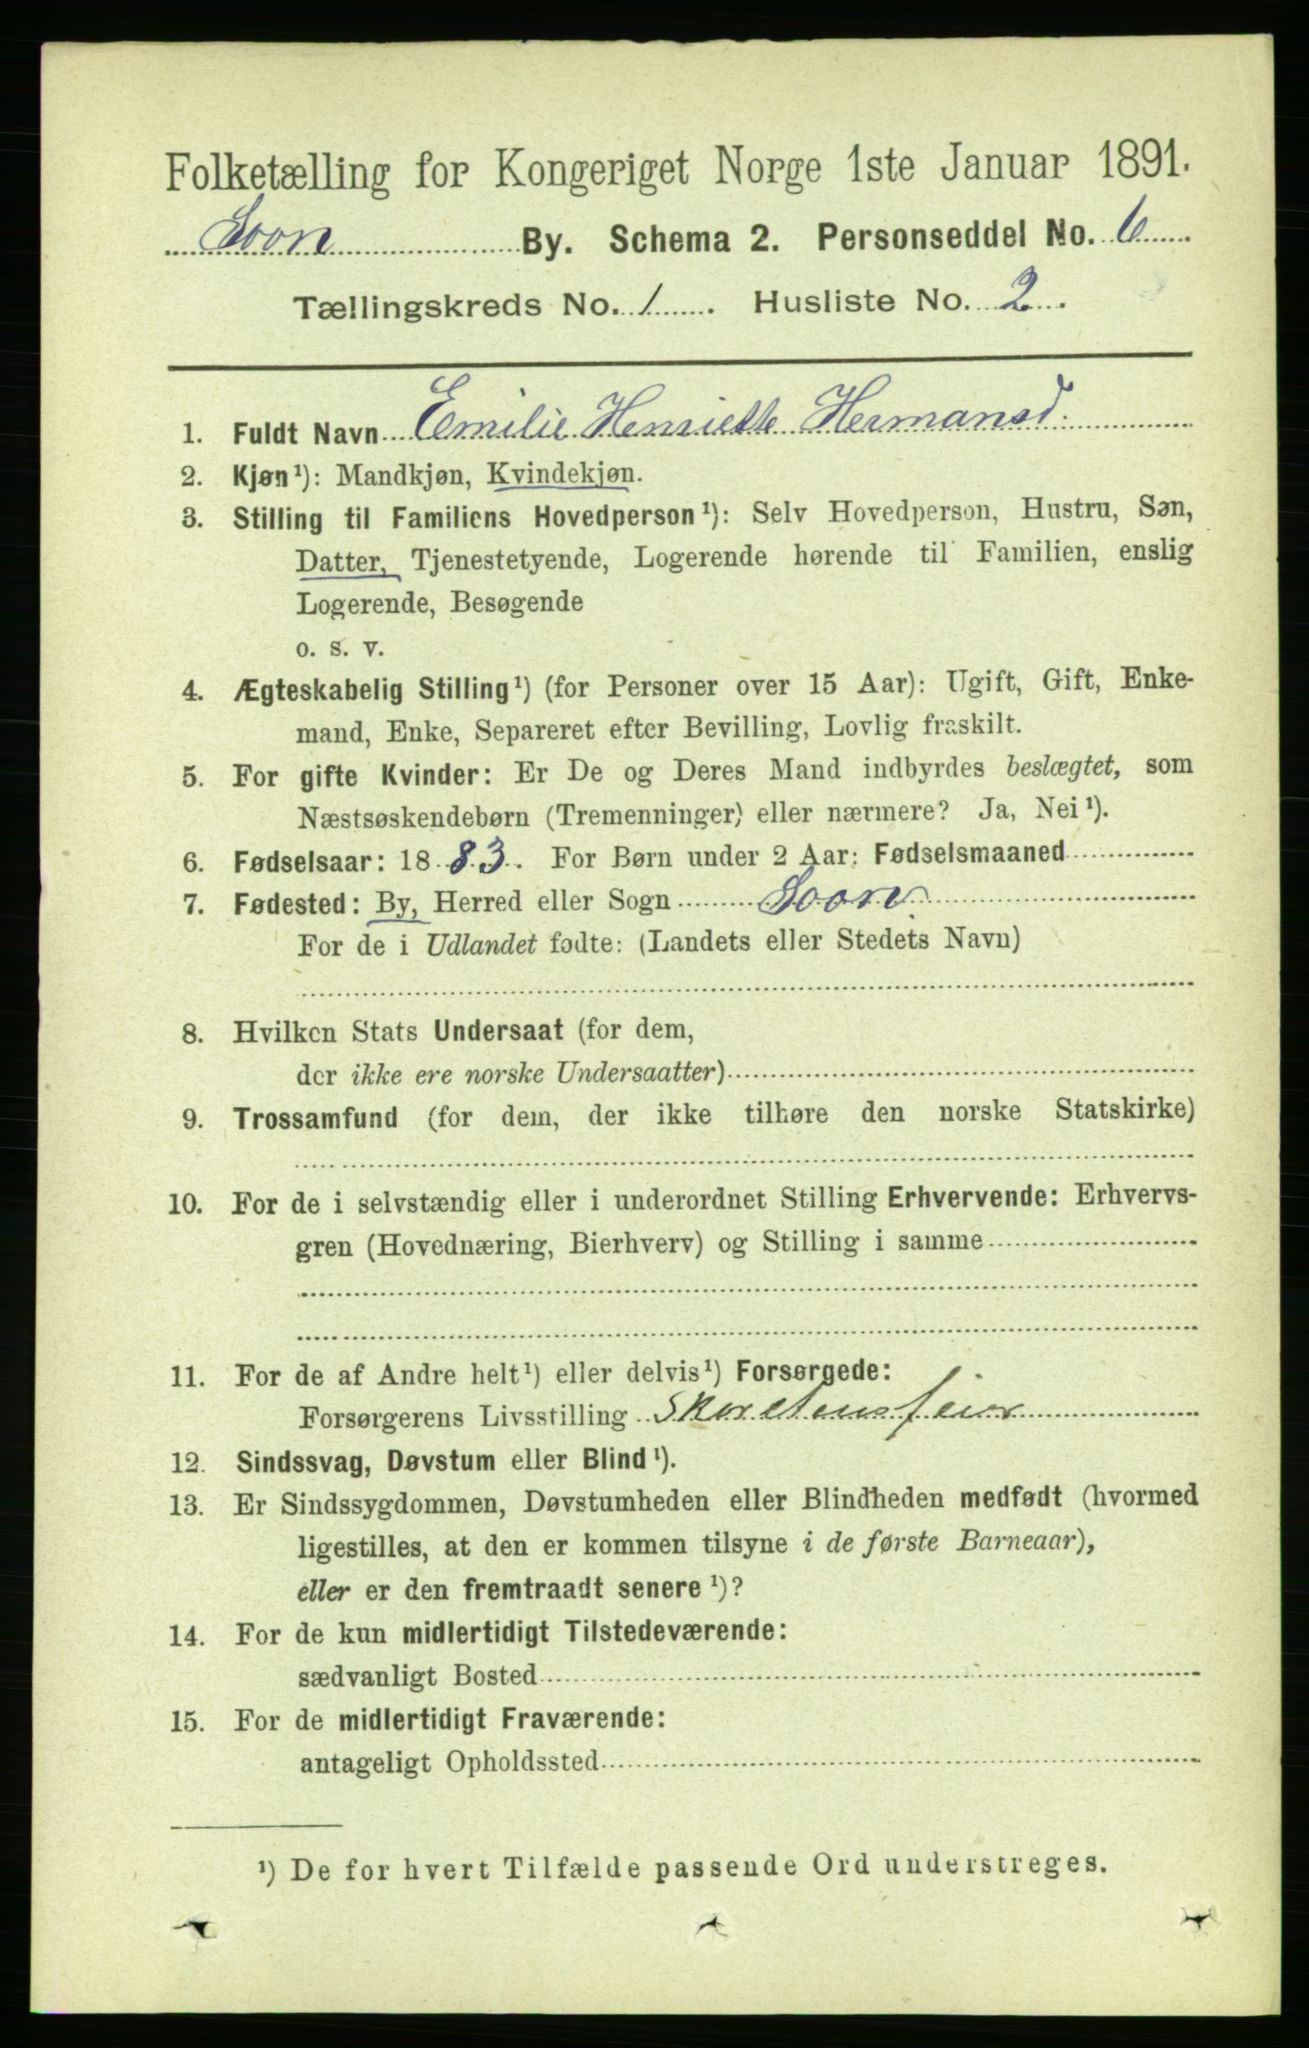 Folketælling for Kongeriget Norge 1ste Januar 1891.
Soon By. Schema 2. Personseddel No. 6
Tællingskreds No. 1. Husliste No. 2.
1. Fuldt Navn Emilie Henriette Hermansd.
2. Kjøn¹): Mandkjøn, Kvindekjøn.
3. Stilling til Familiens Hovedperson¹): Selv Hovedperson, Hustru, Søn,
Datter, Tjenestetyende, Logerende hørende til Familien, enslig
Logerende, Besøgende
o. s. v.
4. Ægteskabelig Stilling¹) (for Personer over 15 Aar): Ugift, Gift, Enke-
mand, Enke, Separeret efter Bevilling, Lovlig fraskilt.
5. For gifte Kvinder: Er De og Deres Mand indbyrdes beslægtet, som
Næstsøskendebørn (Tremenninger) eller nærmere? Ja, Nei¹).
6. Fødselsaar: 1883. For Børn under 2 Aar: Fødselsmaaned
7. Fødested: By, Herred eller Sogn Soon
For de i Udlandet fødte: (Landets eller Stedets Navn)
8. Hvilken Stats Undersaat (for dem,
der ikke ere norske Undersaatter)
9. Trossamfund (for dem, der ikke tilhøre den norske Statskirke)
10. For de i selvstændig eller i underordnet Stilling Erhvervende: Erhvervs-
gren (Hovednæring, Bierhverv) og Stilling i samme
11. For de af Andre helt¹) eller delvis¹) Forsørgede:
Forsørgerens Livsstilling Skorstensfeier
12. Sindssvag, Døvstum eller Blind¹).
13. Er Sindssygdommen, Døvstumheden eller Blindheden medfødt (hvormed
ligestilles, at den er kommen tilsyne i de første Barneaar),
eller er den fremtraadt senere¹)?
14. For de kun midlertidigt Tilstedeværende:
sædvanligt Bosted
15. For de midlertidigt Fraværende:
antageligt Opholdssted
¹) De for hvert Tilfælde passende Ord understreges.